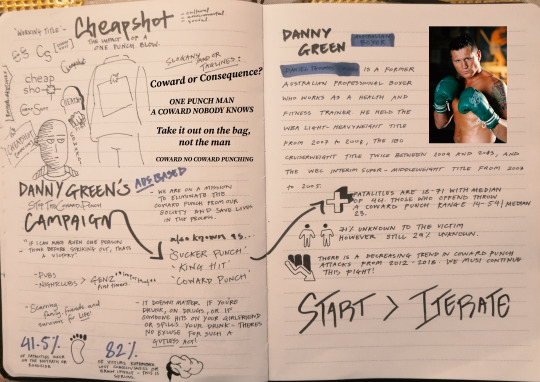 "WORKING TITLE" -
Cheapshot
- cultural
- environmental
- social
THE IMPACT OF A
ONE PUNCH BLOW.
CS
Cheapshot
cheap
SLOGANS AND/OR
TAGLINES:
Coward or Consequence?
ONE PUNCH MAN
A COWARD NOBODY KNOWS
Take it out on the bag,
not the man
COWARD NO COWARD PUNCHING
DANNY GREEN'S
ADS BASED
STOP THE COWARD PUNCH
CAMPAIGN
- WE ARE ON A MISSION
TO ELIMINATE THE
COWARD PUNCH FROM OUR
SOCIETY AND SAVE LIVES
IN THE PROCESS.
"IF I CAN MAKE EVEN ONE PERSON
THINK BEFORE STRIKING OUT, THATS
A VICTORY"
also known as...
'SUCKER PUNCH'
'KING HIT'
'COWARD PUNCH'
- PUBS
- NIGHTCLUBS > GENZ
first timers
- Scarring
family, friends and
survivors for life!
- IT DOESN'T MATTER IF YOU'RE
DRUNK, ON DRUGS, OR IF
SOMEONE HITS ON YOUR GIRLFRIEND
OR SPILLS YOUR DRINK - THERES
NO EXCUSE FOR SUCH A
GUTLESS ACT!
41.5%
OF FATALITIES OCCUR
ON THE FOOTPATH OR
ROADSIDE
82%
OF VICTIMS EXPERIENCE
LOST CONSCIOUSNESS OR
BRAIN INJURY - THIS IS
SERIOUS
DANNY
GREEN
AUSTRALIAN
BOXER
DANIEL THOMAS GREEN IS A FORMER
AUSTRALIAN PROFESSIONAL BOXER
WHO WORKS AS A HEALTH AND
FITNESS TRAINER. HE HELD THE
WBA LIGHT-HEAVYWEIGHT TITLE
FROM 2007 TO 2008, THE IBO
CRUISERWEIGHT TITLE TWICE BETWEEN 2009 AND 2013, AND
THE WBC INTERIM SUPER-MIDDLEWEIGHT TITLE FROM 2003
TO 2005.
FATALITIES ARE 18-71 WITH MEDIAN
OF 44. THOSE WHO OFFEND THROW
A COWARD PUNCH RANGE 14-54 | MEDIAN
23.
71% UNKNOWN TO THE VICTIM
HOWEVER STILL 29% UNKNOWN.
THERE IS A DECREASING TREND IN COWARD PUNCH
ATTACKS FROM 2012-2018. WE MUST CONTINUE
THIS FIGHT!
START > ITERATE